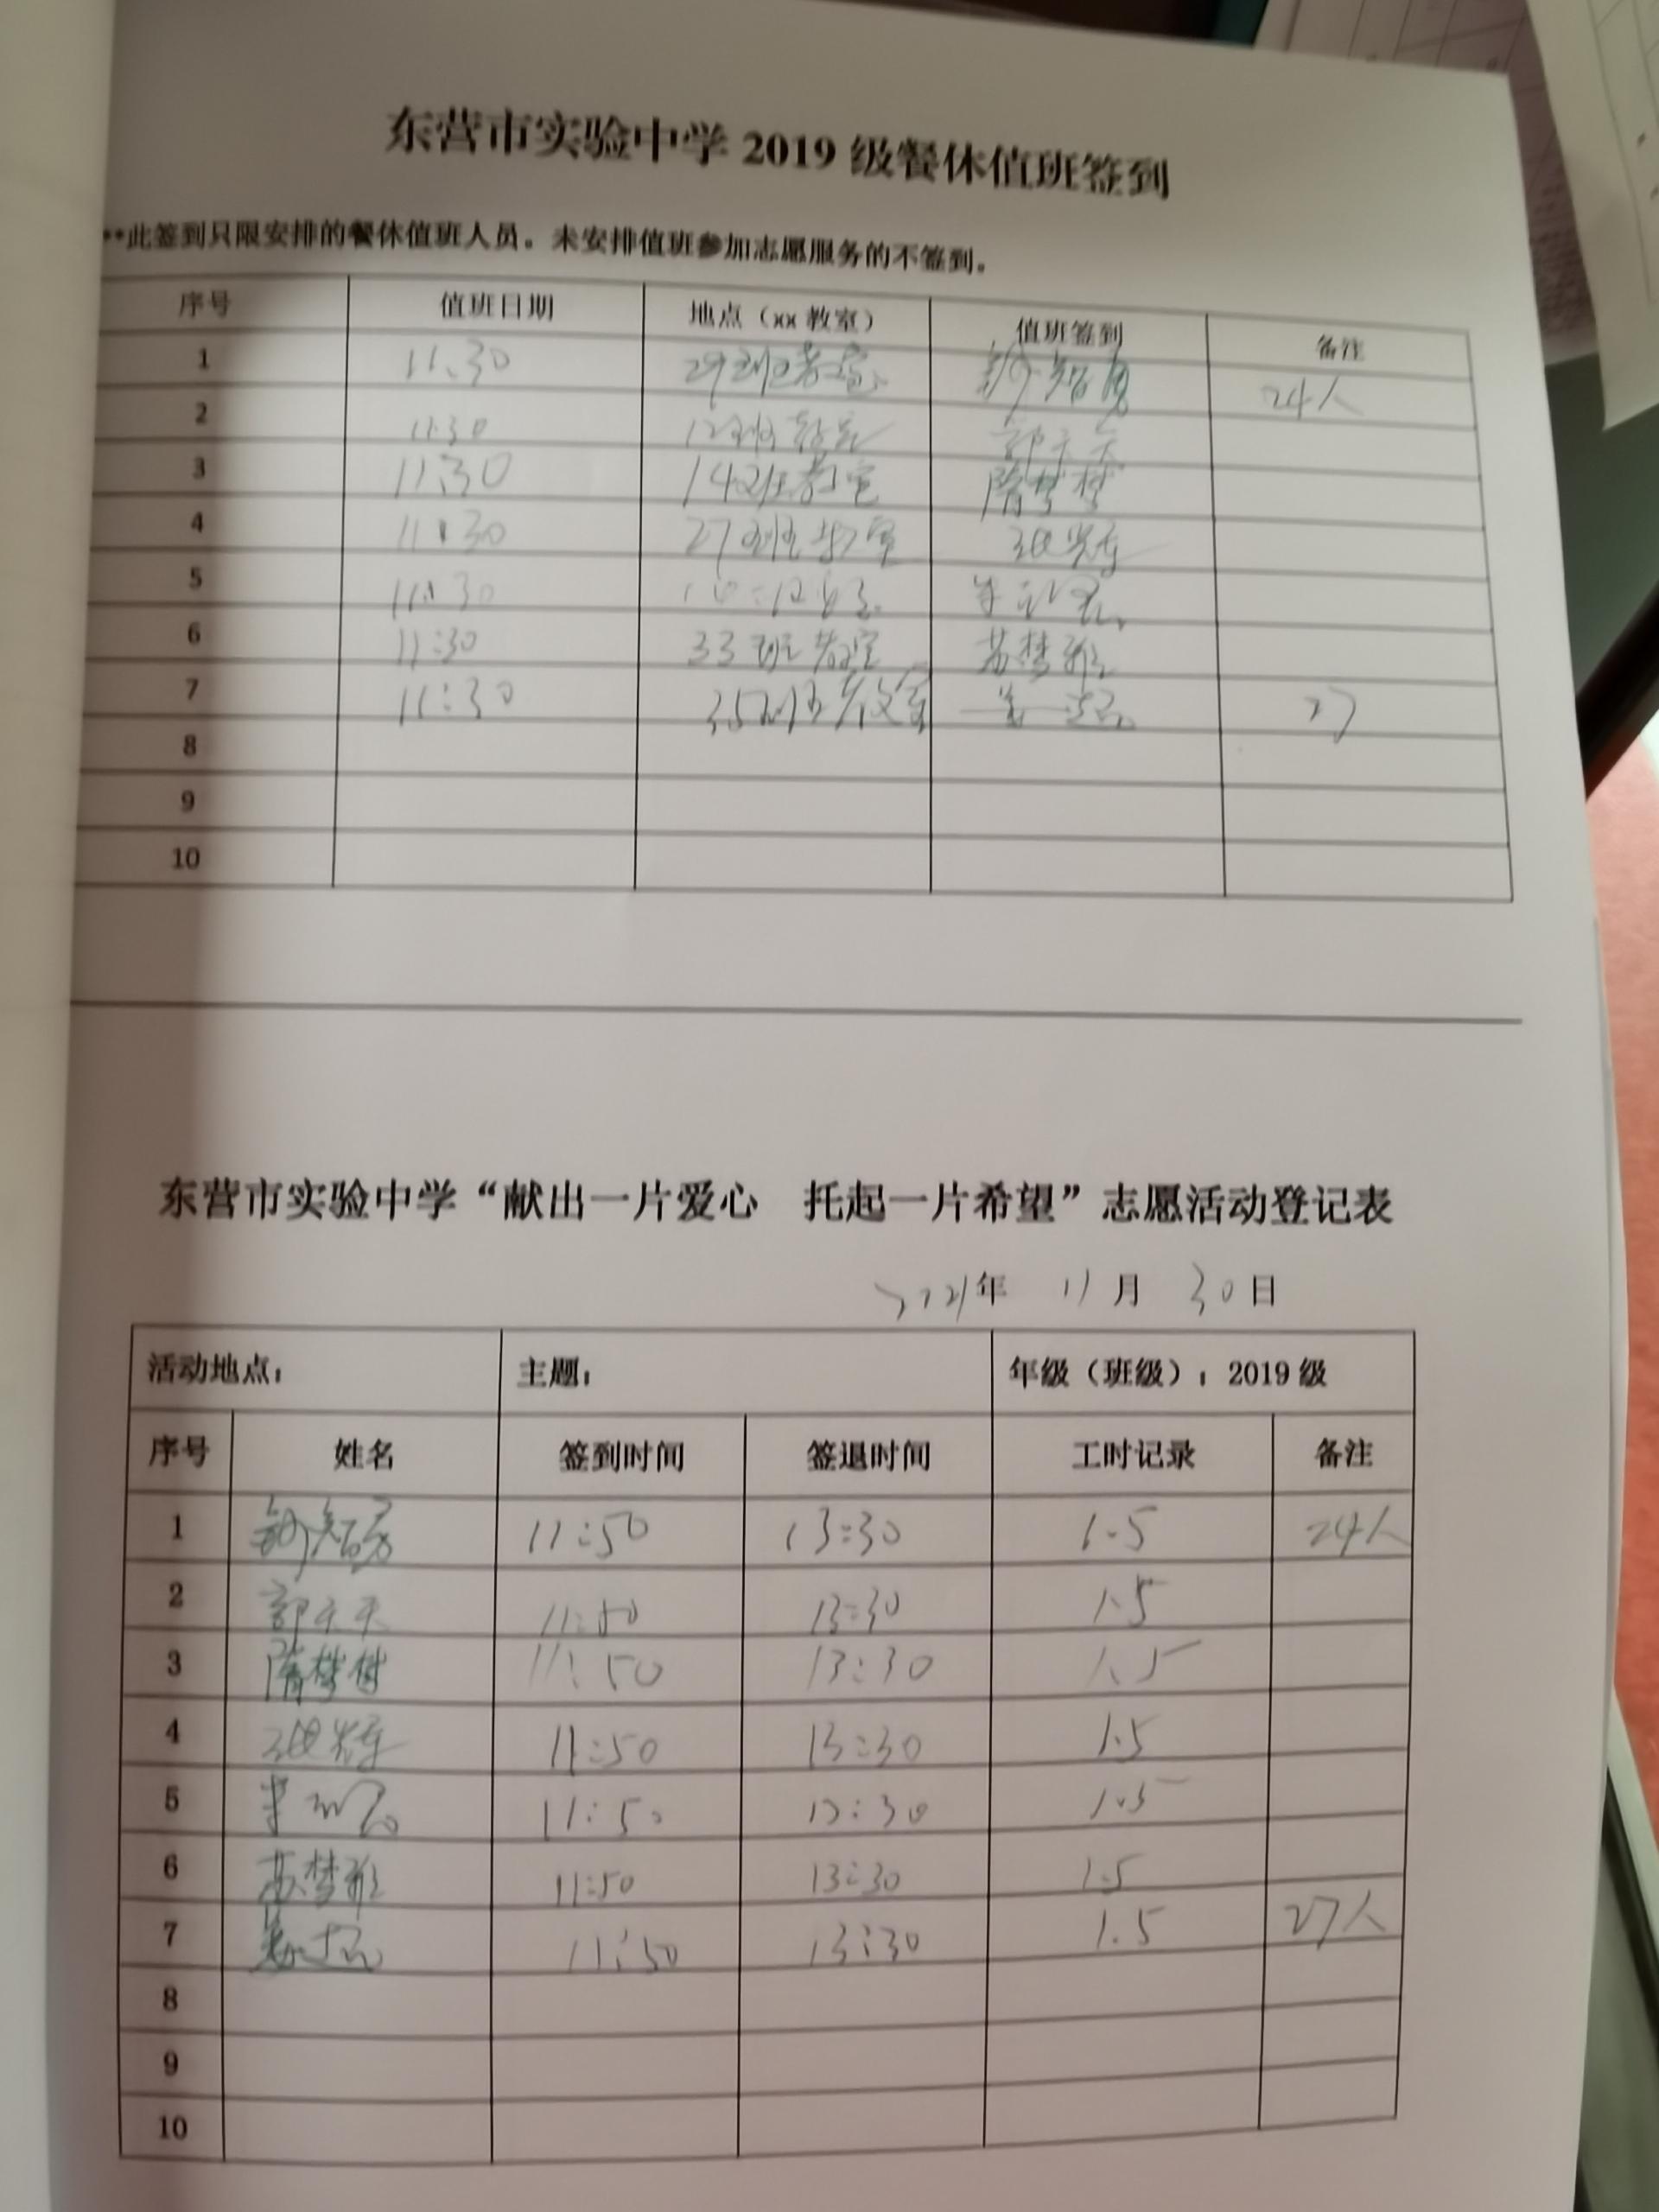 东营市实验中学 2019 级餐休值班签到
**此签到只限安排的餐休值班人员。未安排值班参加志愿服务的不签到。
序号 值班日期 地点（xx 教室） 值班签到 备注
1 11.30 29班教室 24人
2 11.30 12班教室 郭天天
3 11.30 14班教室 隋梦梦
4 11.30 27班教室
5 11.30
6 11:30 33班教室 苏梦雅
7 11:30 35班教室 27
8
9
10
东营市实验中学“献出一片爱心 托起一片希望”志愿活动登记表
2021年 11月 30日
活动地点： 主题： 年级（班级）：2019 级
序号 姓名 签到时间 签退时间 工时记录 备注
1 11:50 13:30 1.5 24人
2 郭天天 11:50 13:30 1.5
3 隋梦梦 11:50 13:30 1.5
4 11:50 13:30 1.5
5 11:50 13:30 1.5
6 苏梦雅 11:50 13:30 1.5
7 11:50 13:30 1.5 27人
8
9
10